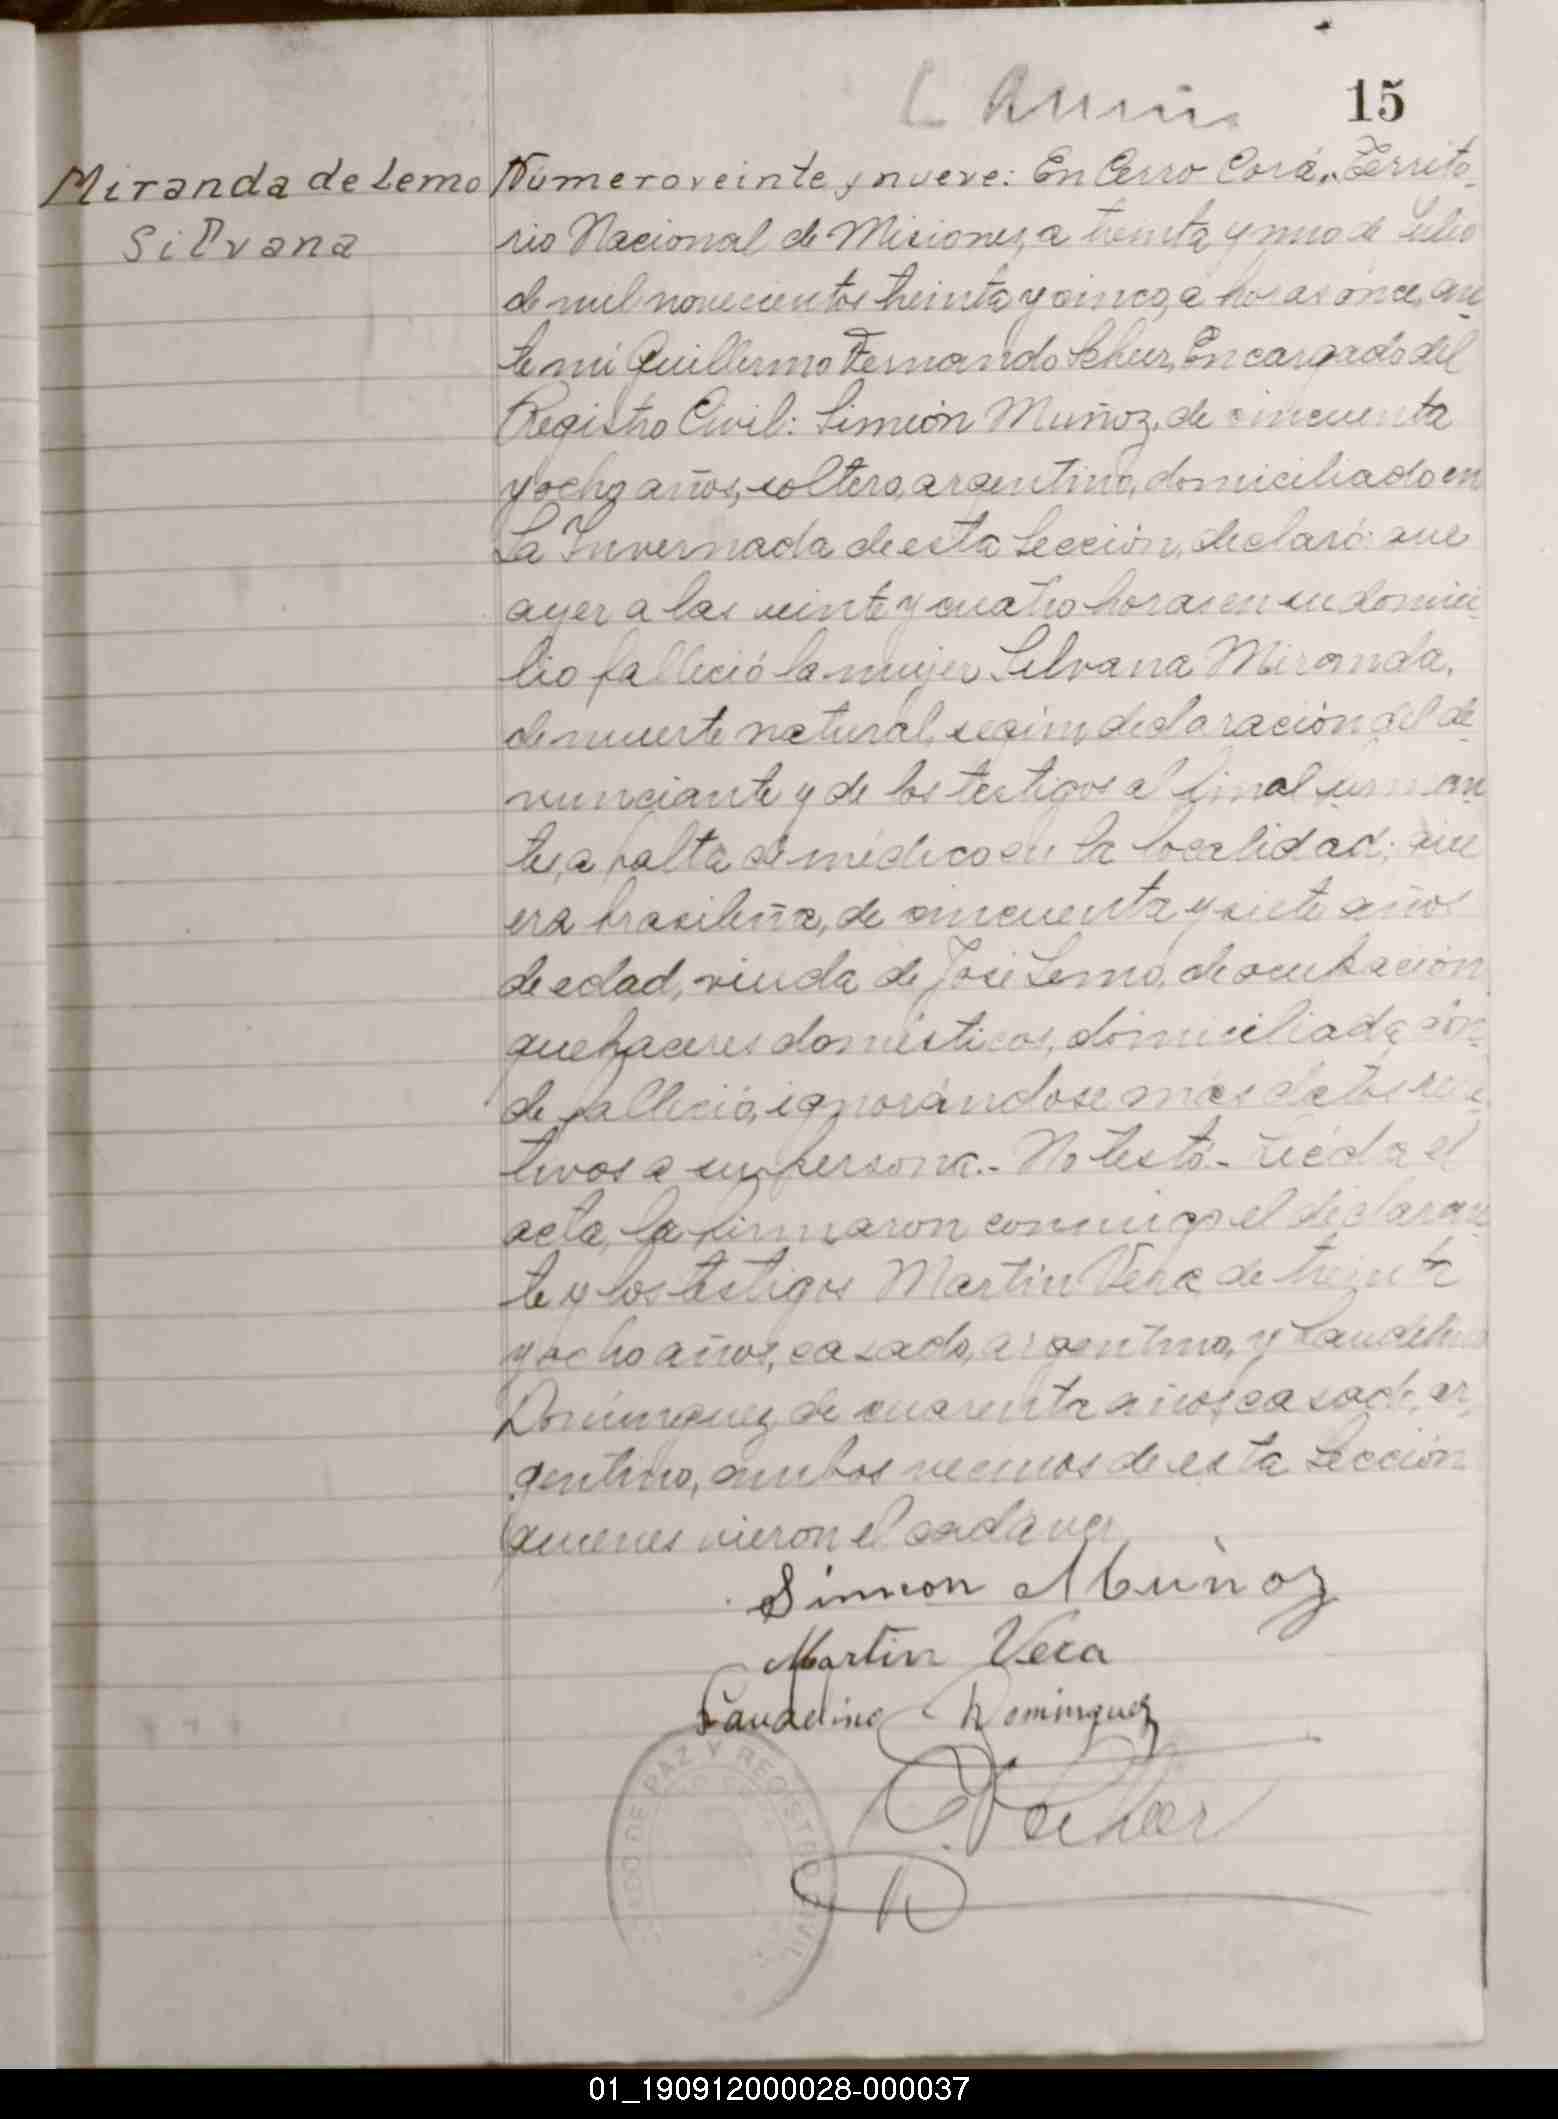 15
Miranda de Lemo
Silvana
Número veinte y nueve: En Cerro Corá, Territo-
rio Nacional de Misiones, a treinta y uno de Julio
de mil novecientos treinta y cinco, a horas once, an-
te mi Guillermo Fernando Scheer, Encargado del
Registro Civil: Simeón Muñoz, de cincuenta
y ocho años, soltero, argentino, domiciliado en
La Invernada de esta Sección, declaró: que
ayer a las veinte y cuatro horas en su domici-
lio falleció la mujer Silvana Miranda,
de muerte natural, según declaración del de-
nunciante y de los testigos al final firman-
tes, a falta de médico en la localidad; que
era brasileña, de cincuenta y siete años
de edad, viuda de José Lemo, de ocupación
quehaceres domésticos, domiciliada don-
de falleció, ignorándose más datos rela-
tivos a su persona.- No testó.- Leída el
acta, la firmaron conmigo el declaran-
te y los testigos Martin Vera de treinta
y ocho años, casado, argentino, y Laudelino
Domínguez, de cuarenta años, casado, ar-
gentino, ambos vecinos de esta Sección
quienes vieron el cadáver
Simeon Muñoz
Martin Vera
Laudelino Dominguez
Scheer
DE PAZ Y REGISTRO CIVIL
01_190912000028-000037